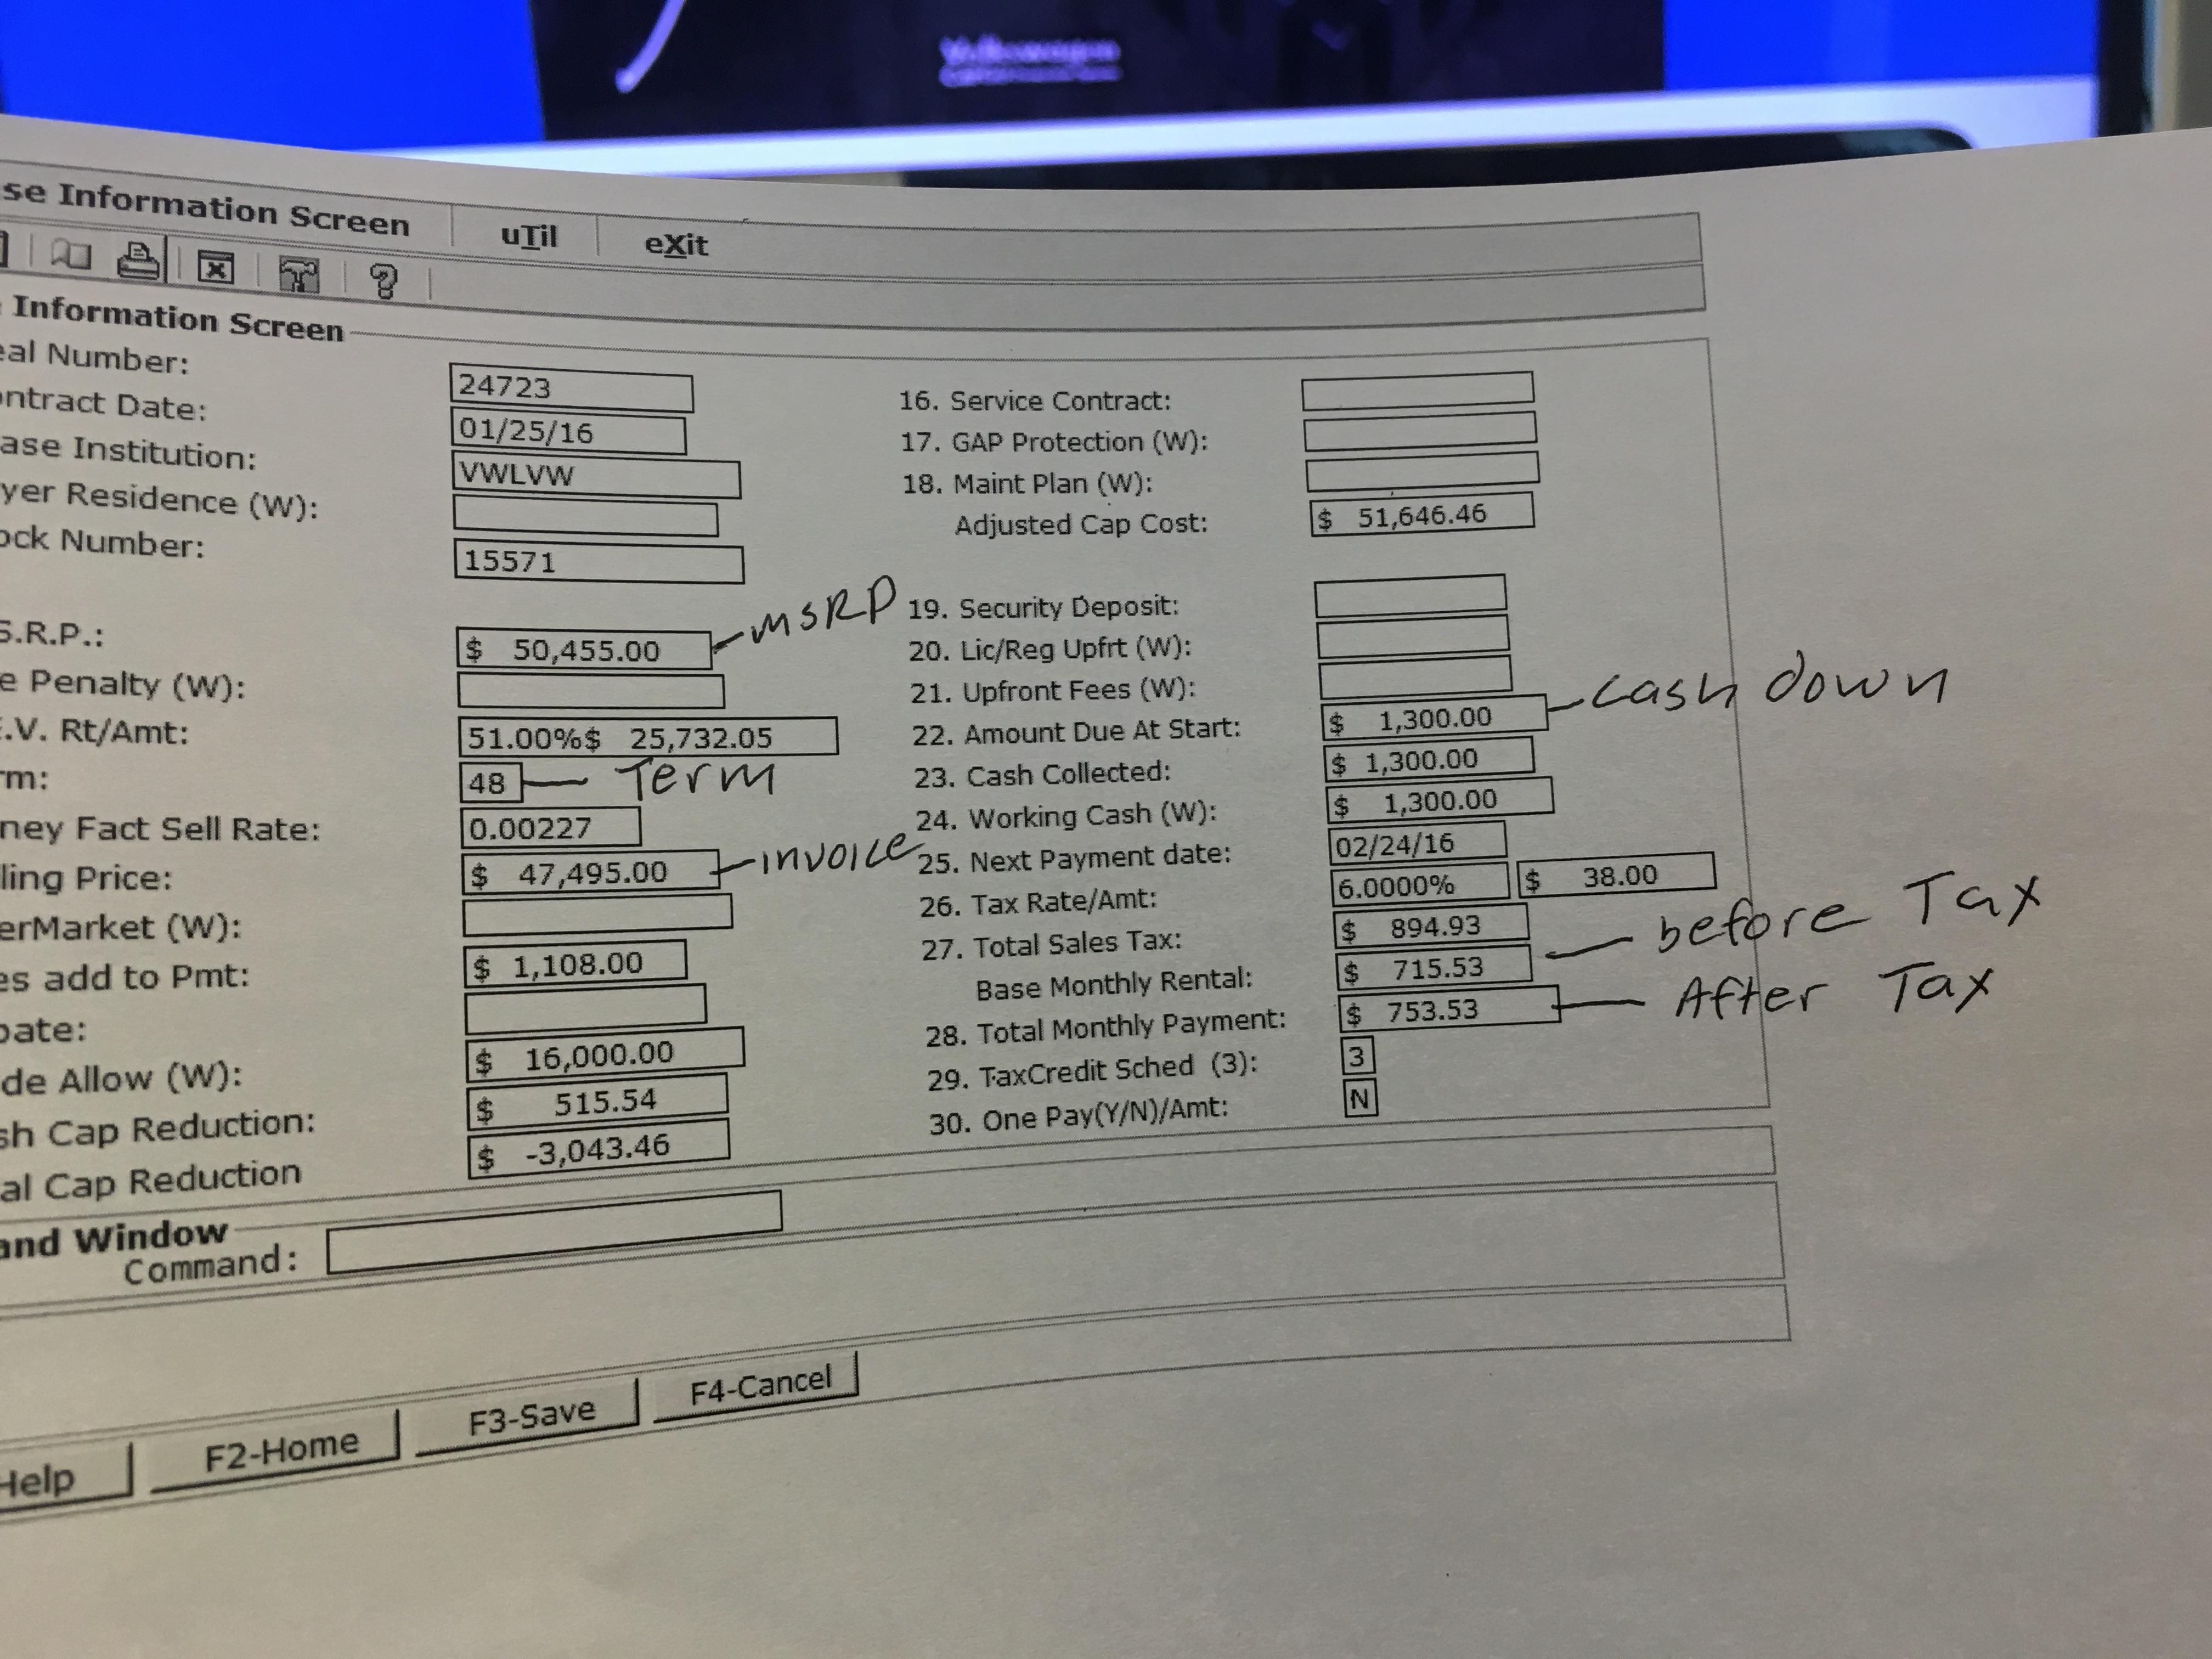 Volkswagen
se Information Screen uTil eXit
?
Information Screen
eal Number: 24723
ontract Date: 01/25/16
ase Institution: VWLVW
yer Residence (W):
ock Number: 15571
S.R.P.: $ 50,455.00 MSRP
e Penalty (W):
.V. Rt/Amt: 51.00%$ 25,732.05
rm: 48 Term
ney Fact Sell Rate: 0.00227
ling Price: $ 47,495.00 invoice
erMarket (W):
es add to Pmt: $ 1,108.00
bate:
de Allow (W): $ 16,000.00
sh Cap Reduction: $ 515.54
al Cap Reduction $ -3,043.46
16. Service Contract:
17. GAP Protection (W):
18. Maint Plan (W):
Adjusted Cap Cost: $ 51,646.46
19. Security Deposit:
20. Lic/Reg Upfrt (W):
21. Upfront Fees (W):
22. Amount Due At Start: $ 1,300.00 cash down
23. Cash Collected: $ 1,300.00
24. Working Cash (W): $ 1,300.00
25. Next Payment date: 02/24/16
26. Tax Rate/Amt: 6.0000% $ 38.00
27. Total Sales Tax: $ 894.93
Base Monthly Rental: $ 715.53 before Tax
28. Total Monthly Payment: $ 753.53 After Tax
29. TaxCredit Sched (3): 3
30. One Pay(Y/N)/Amt: N
and Window
Command:
Help F2-Home F3-Save F4-Cancel